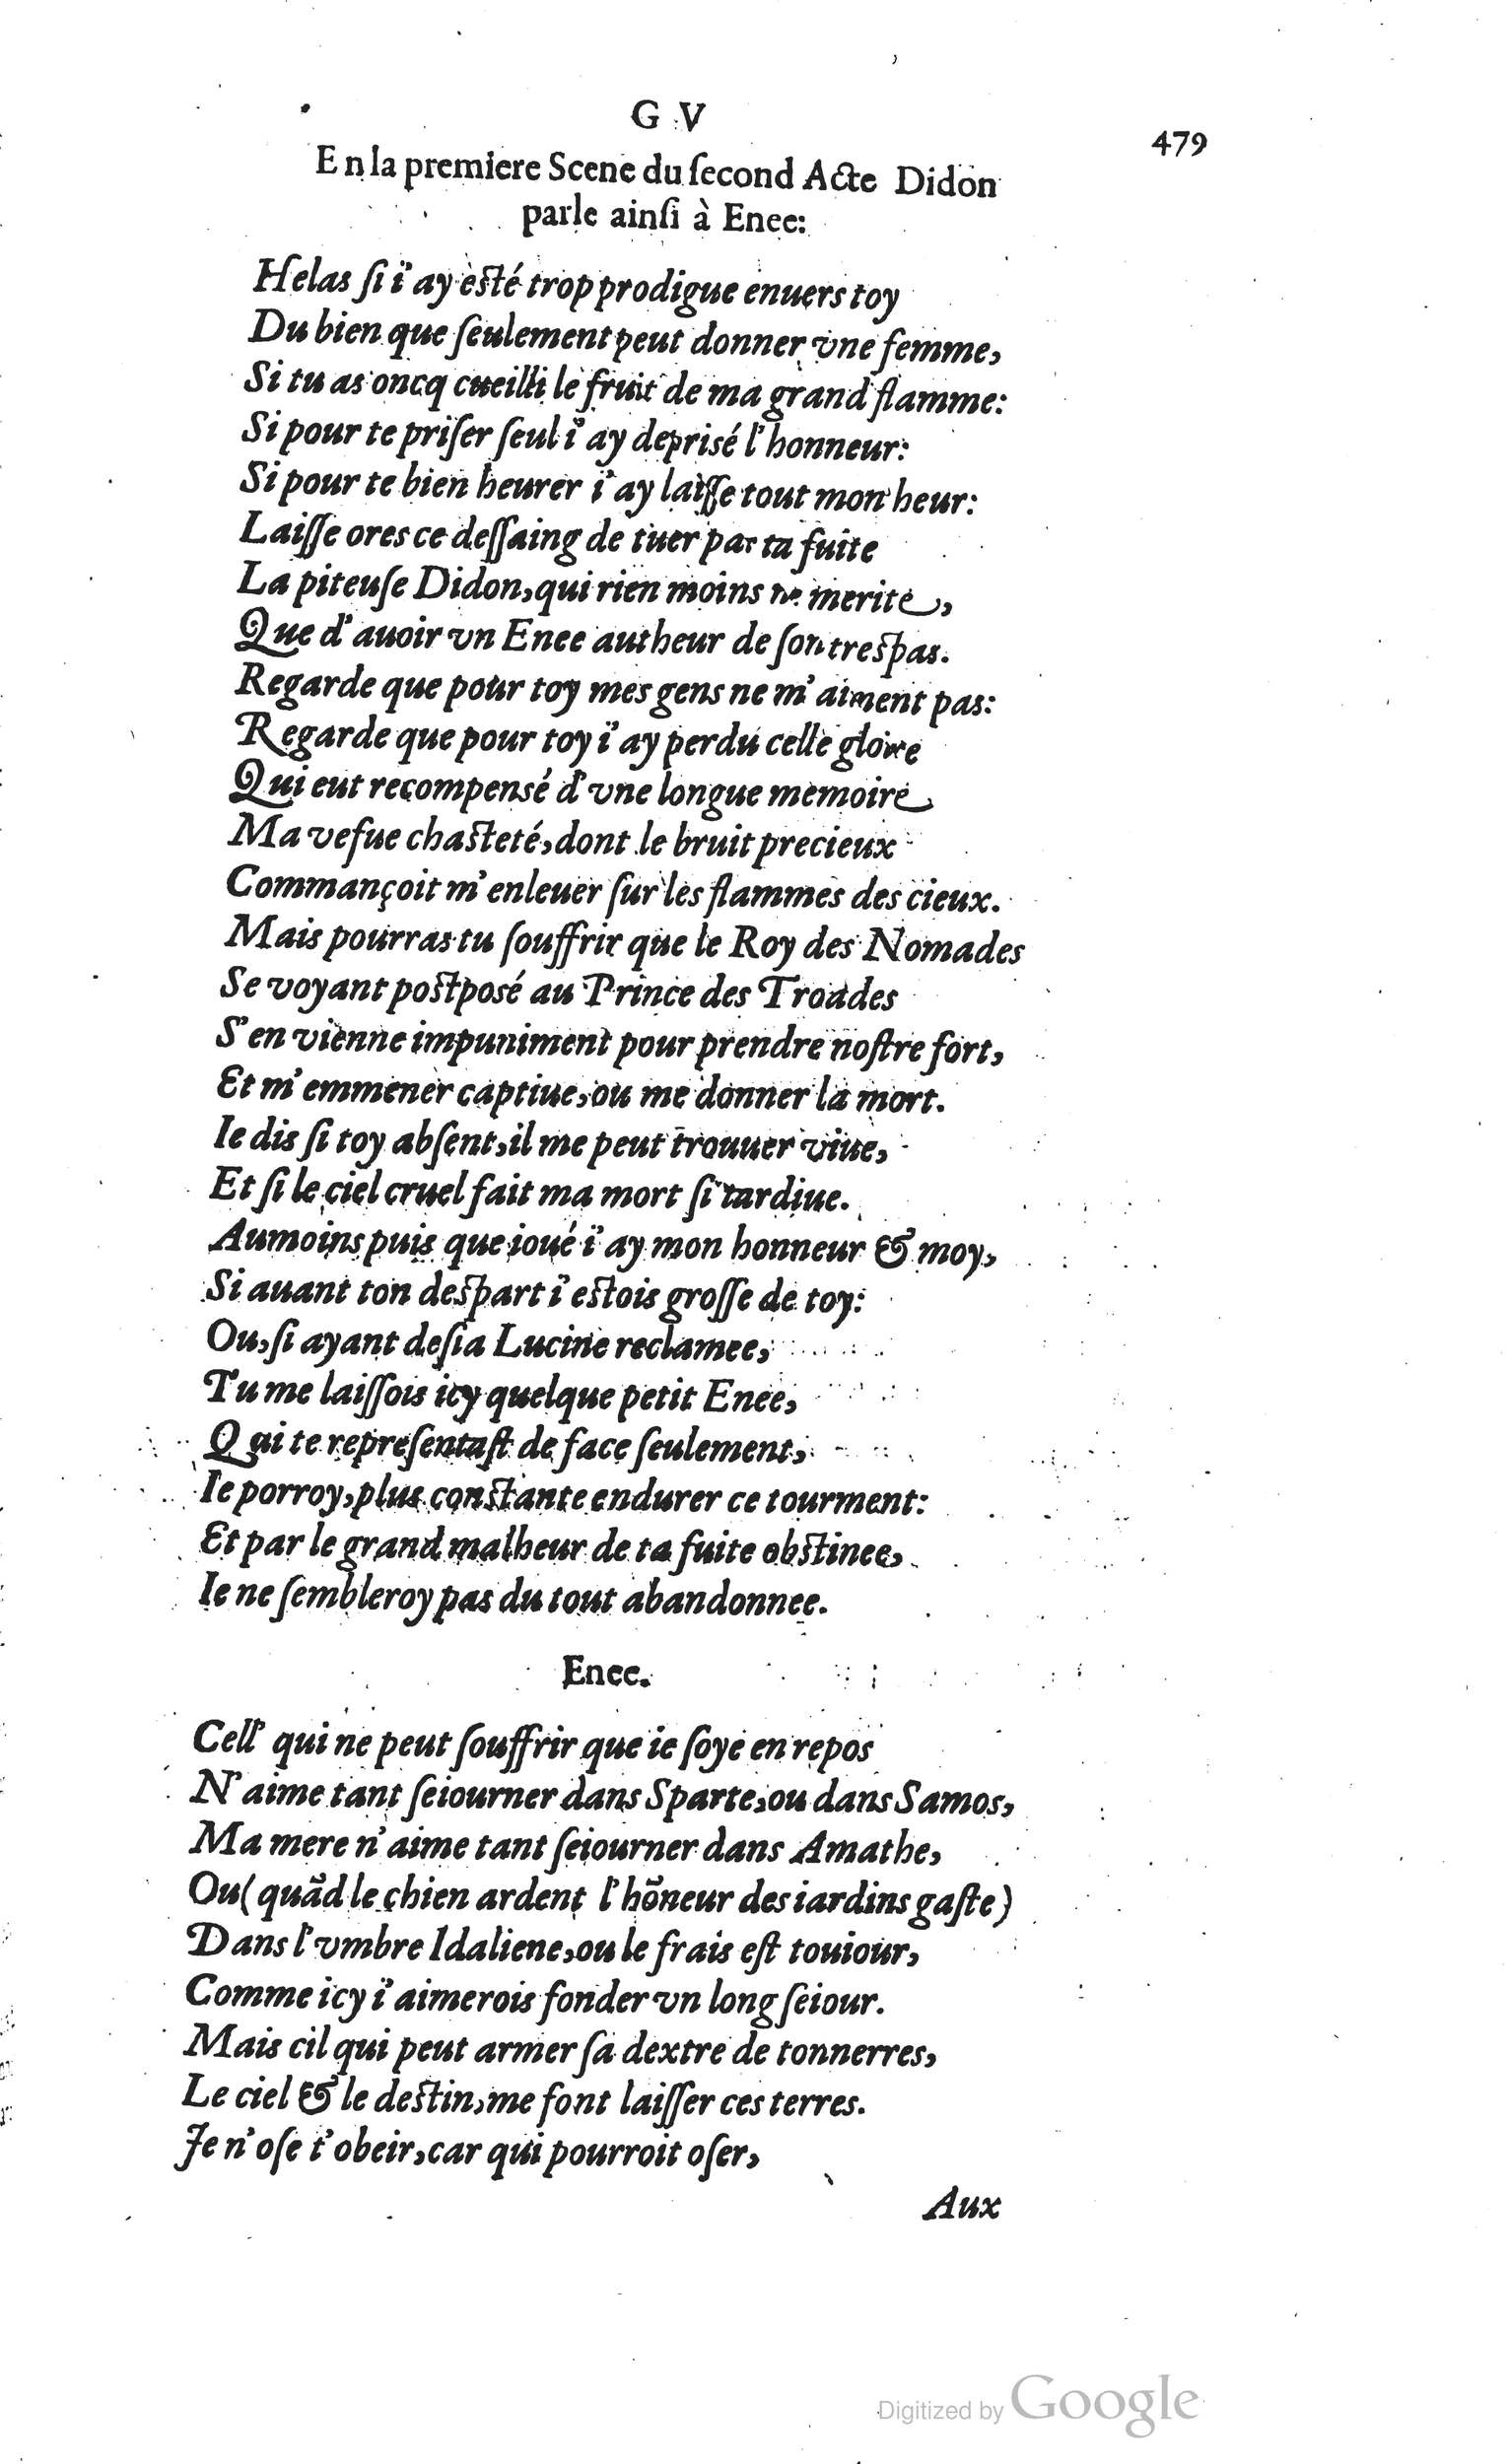 G V
479
En la premiere Scene du ſecond Acte Didon
parle ainſi à Enee:
Helas ſi i'ay eſté trop prodigue enuers toy
Du bien que ſeulement peut donner vne femme,
Si tu as oncq cueilli le fruit de ma grand flamme:
Si pour te priſer ſeul i'ay deprisé l'honneur:
Si pour te bien heurer i'ay laiſſe tout mon heur:
Laiſſe ores ce deſſaing de tuer par ta fuite
La piteuſe Didon, qui rien moins ne merite,
Que d'auoir vn Enee autheur de ſon treſpas.
Regarde que pour toy mes gens ne m'aiment pas:
Regarde que pour toy i'ay perdu celle gloire
Qui eut recompensé d'vne longue memoire
Ma vefue chaſteté, dont le bruit precieux
Commançoit m'enleuer ſur les flammes des cieux.
Mais pourras tu ſouffrir que le Roy des Nomades
Se voyant poſtposé au Prince des Troades
S'en vienne impuniment pour prendre noſtre fort,
Et m'emmener captiue, ou me donner la mort.
Ie dis ſi toy abſent, il me peut trouuer viue,
Et ſi le ciel cruel fait ma mort ſi tardiue.
Aumoins puis que ioué i'ay mon honneur & moy,
Si auant ton deſpart i'eſtois groſſe de toy:
Ou, ſi ayant deſia Lucine reclamee,
Tu me laiſſois icy quelque petit Enee,
Qai te repreſentaſt de face ſeulement,
Ie porroy, plus conſtante endurer ce tourment:
Et par le grand malheur de ta fuite obſtinee,
Ie ne ſembleroy pas du tout abandonnee.
Enee.
Cell' qui ne peut ſouffrir que ie ſoye en repos
N'aime tant ſeiourner dans Sparte, ou dans Samos,
Ma mere n'aime tant ſeiourner dans Amathe,
Ou (quãd le chien ardent l'hõneur des iardins gaſte)
Dans l'vmbre Idaliene, ou le frais eſt touiour,
Comme icy i'aimerois fonder vn long ſeiour.
Mais cil qui peut armer ſa dextre de tonnerres,
Le ciel & le deſtin, me font laiſſer ces terres.
Je n'oſe t'obeir, car qui pourroit oſer,
Aux
Digitized by Google